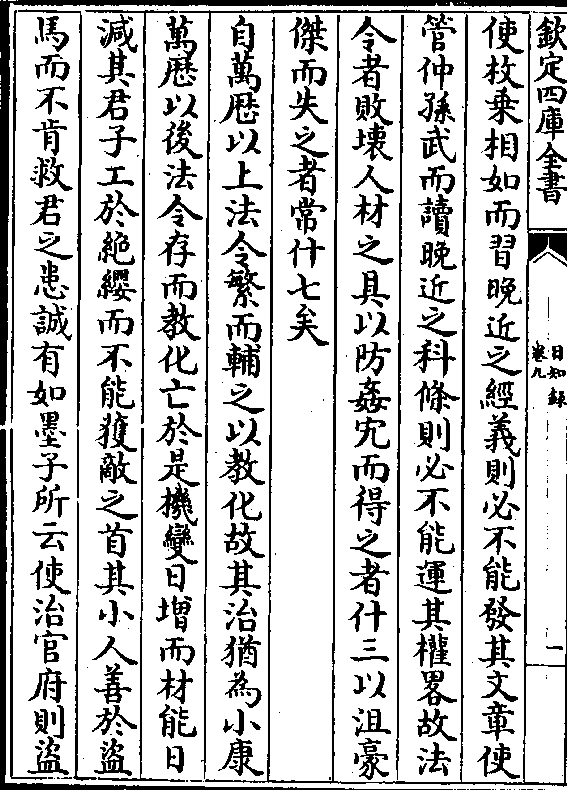 欽定四庫全書
日知録
卷九
一
使枚乗相如而習晚近之經義則必不能發其文章使
管仲孫武而讀晚近之科條則必不能運其權畧故法
令者敗壞人材之具以防姦宄而得之者什三以沮豪
傑而失之者常什七矣
自萬厯以上法令繁而輔之以教化故其治猶為小康
萬厯以後法令存而教化亡於是機變日增而材能日
減其君子工於絶纓而不能獲敵之首其小人善於盜
馬而不肯救君之患誠有如墨子所云使治官府則盜